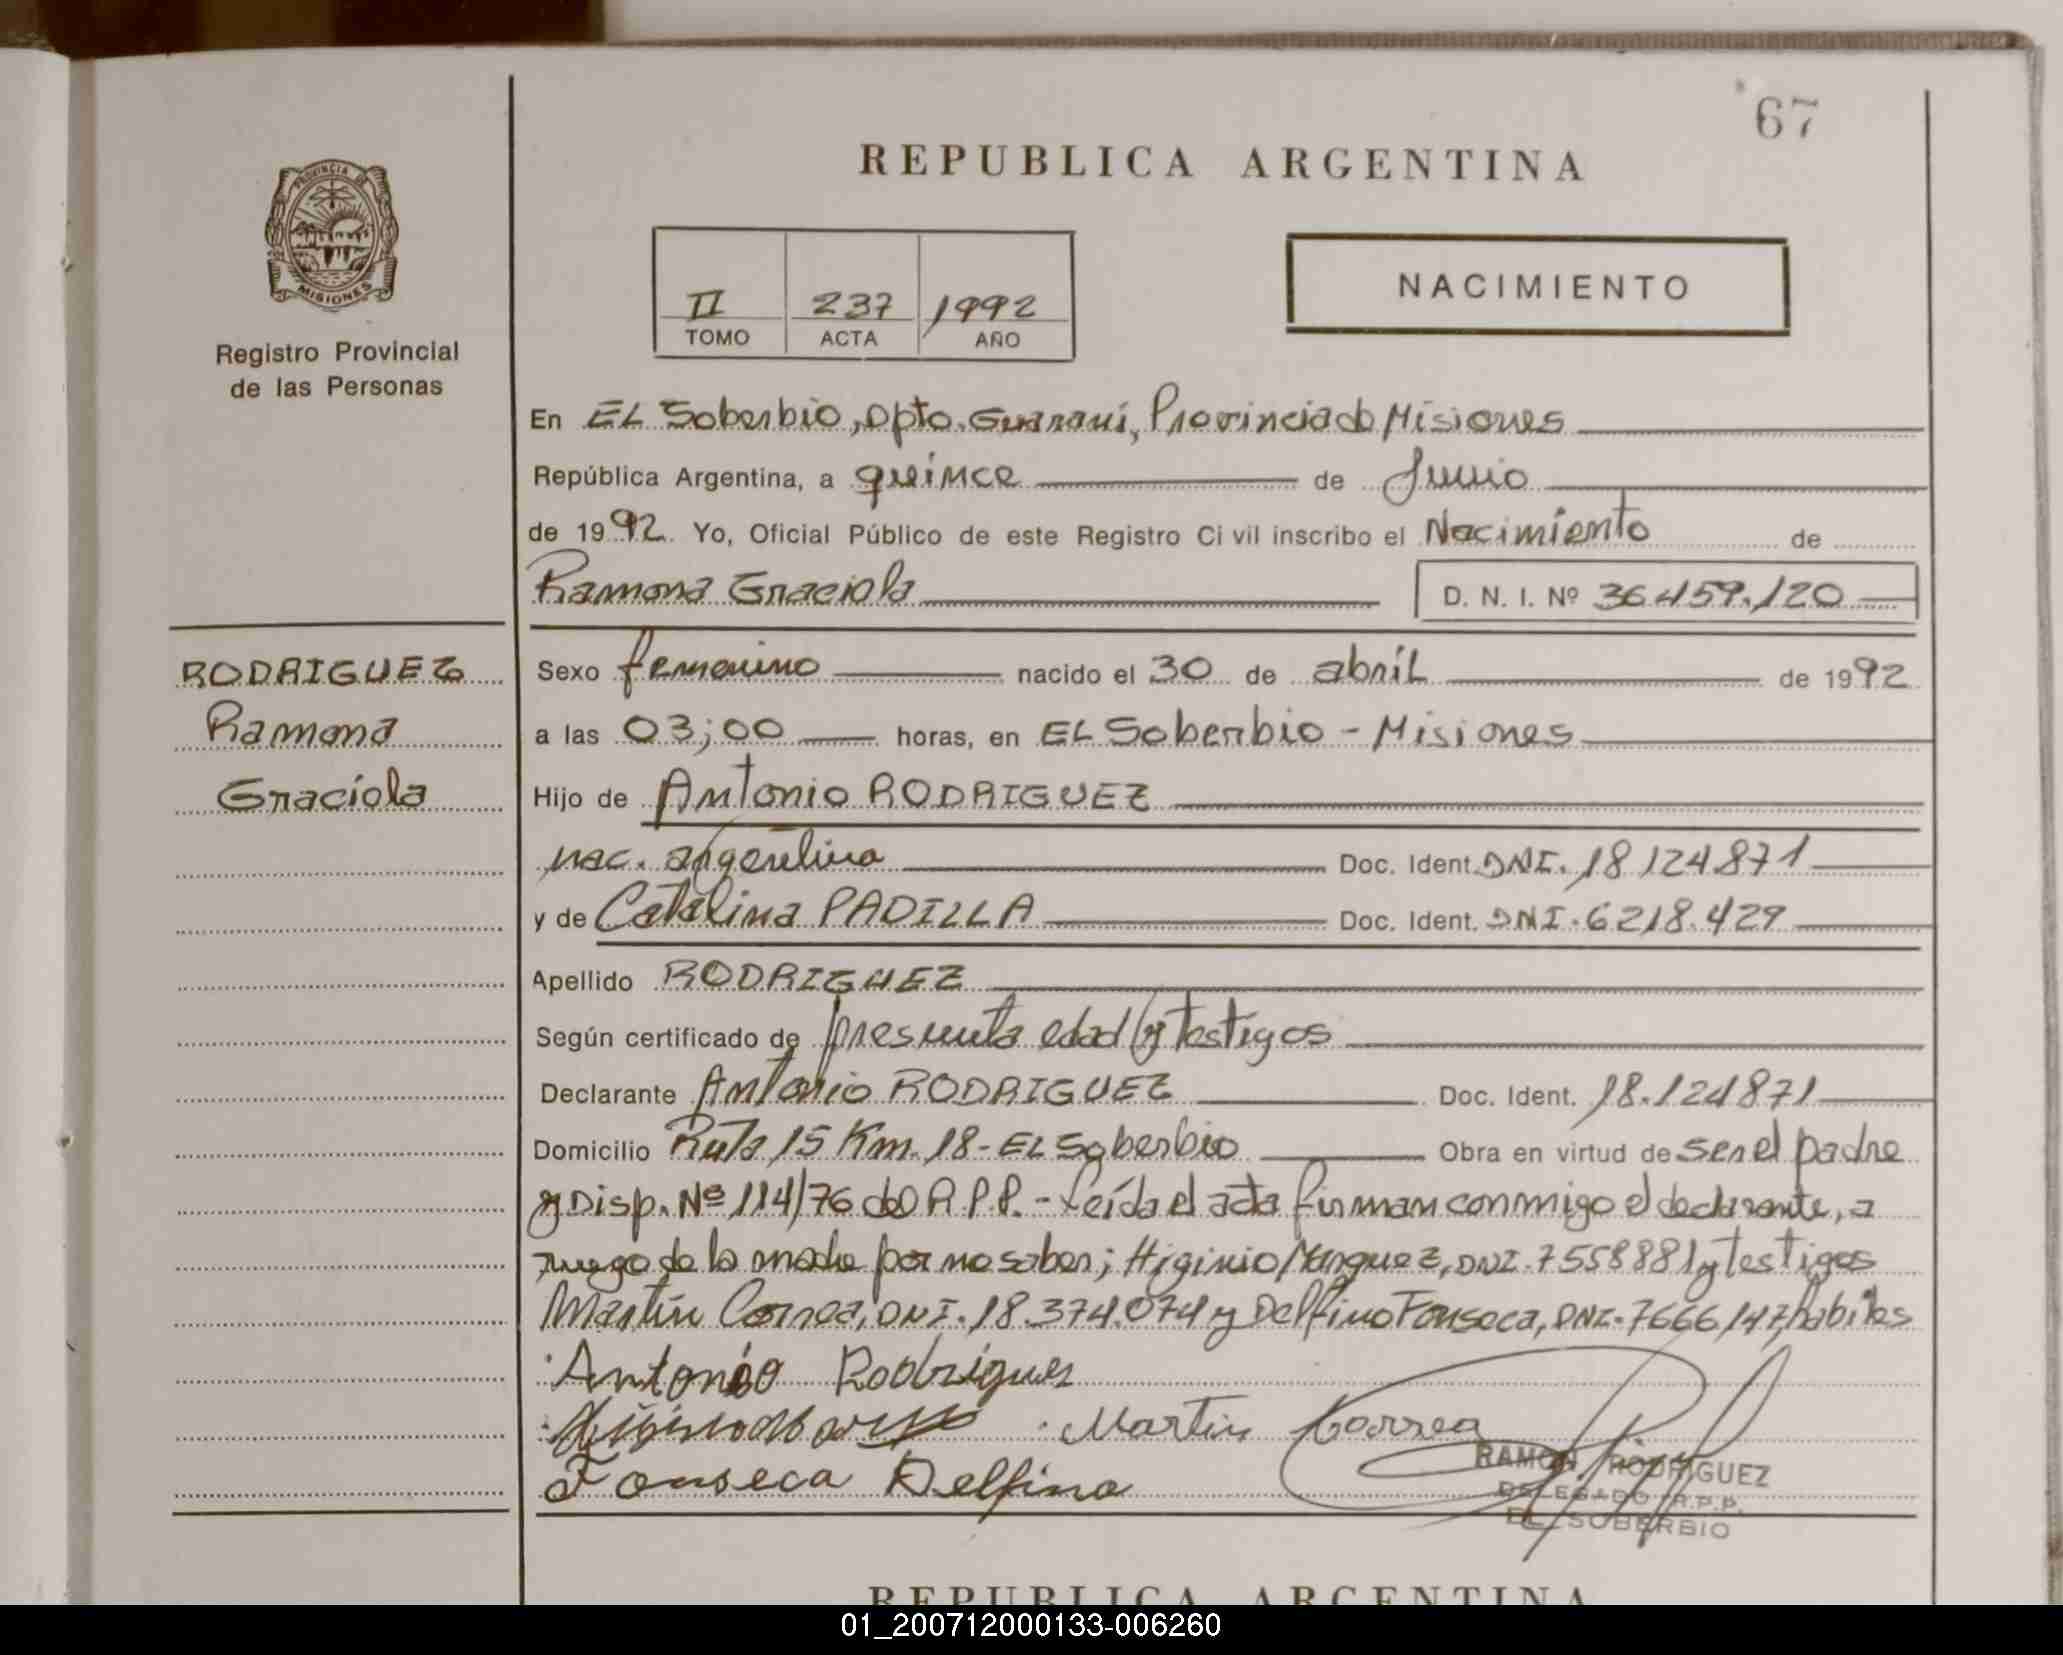 67
REPUBLICA ARGENTINA
PROVINCIA DE
MISIONES
Registro Provincial
de las Personas
II 237 1992
TOMO ACTA AÑO
NACIMIENTO
En EL Soberbio, Dpto. Guaraní, Provincia de Misiones
República Argentina, a quince de Junio
de 1992. Yo, Oficial Público de este Registro Ci vil inscribo el Nacimiento de
Ramona Graciela D. N. I. Nº 36459.120
RODRIGUEZ
Ramona
Graciela
Sexo femenino nacido el 30 de abril de 1992
a las 03;00 horas, en EL Soberbio - Misiones
Hijo de Antonio RODRIGUEZ
nac. argentina Doc. Ident. DNI. 18124.871
y de Catalina PADILLA Doc. Ident. DNI. 6218.429
Apellido RODRIGUEZ
Según certificado de presunta edad y testigos
Declarante Antonio RODRIGUEZ Doc. Ident. 18.124871
Domicilio Ruta 15 Km. 18 - EL Soberbio Obra en virtud de ser el padre
y Disp. Nº 114/76 del R.P.P. - Leída el acta firman conmigo el declarante, a
ruego de la madre por no saber; Higinio Marquez, DNI. 7558881 y testigos
Martín Correa, DNI. 18.374.074 y Delfino Fonseca, DNI. 7666147, habiles
Antonio Rodriguez
Martin Correa
Fonseca Delfino
RAMON RODRIGUEZ
DELEGADO R.P.P.
EL SOBERBIO
REPUBLICA ARGENTINA
01_200712000133-006260